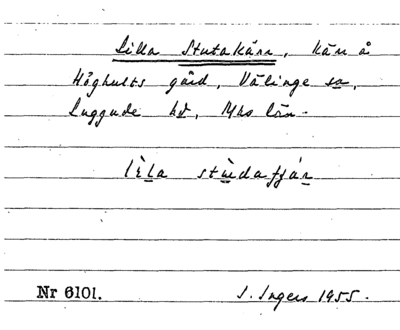 Lilla Stutakärr, kärr å
Höghults gård, Välinge sn,
Luggude hd, Mhs län.
lìla stùdafjár
Nr 6101. I. Ingers 1955.